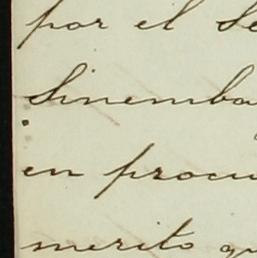 por el Se
Sinemba
en procu
merito qu